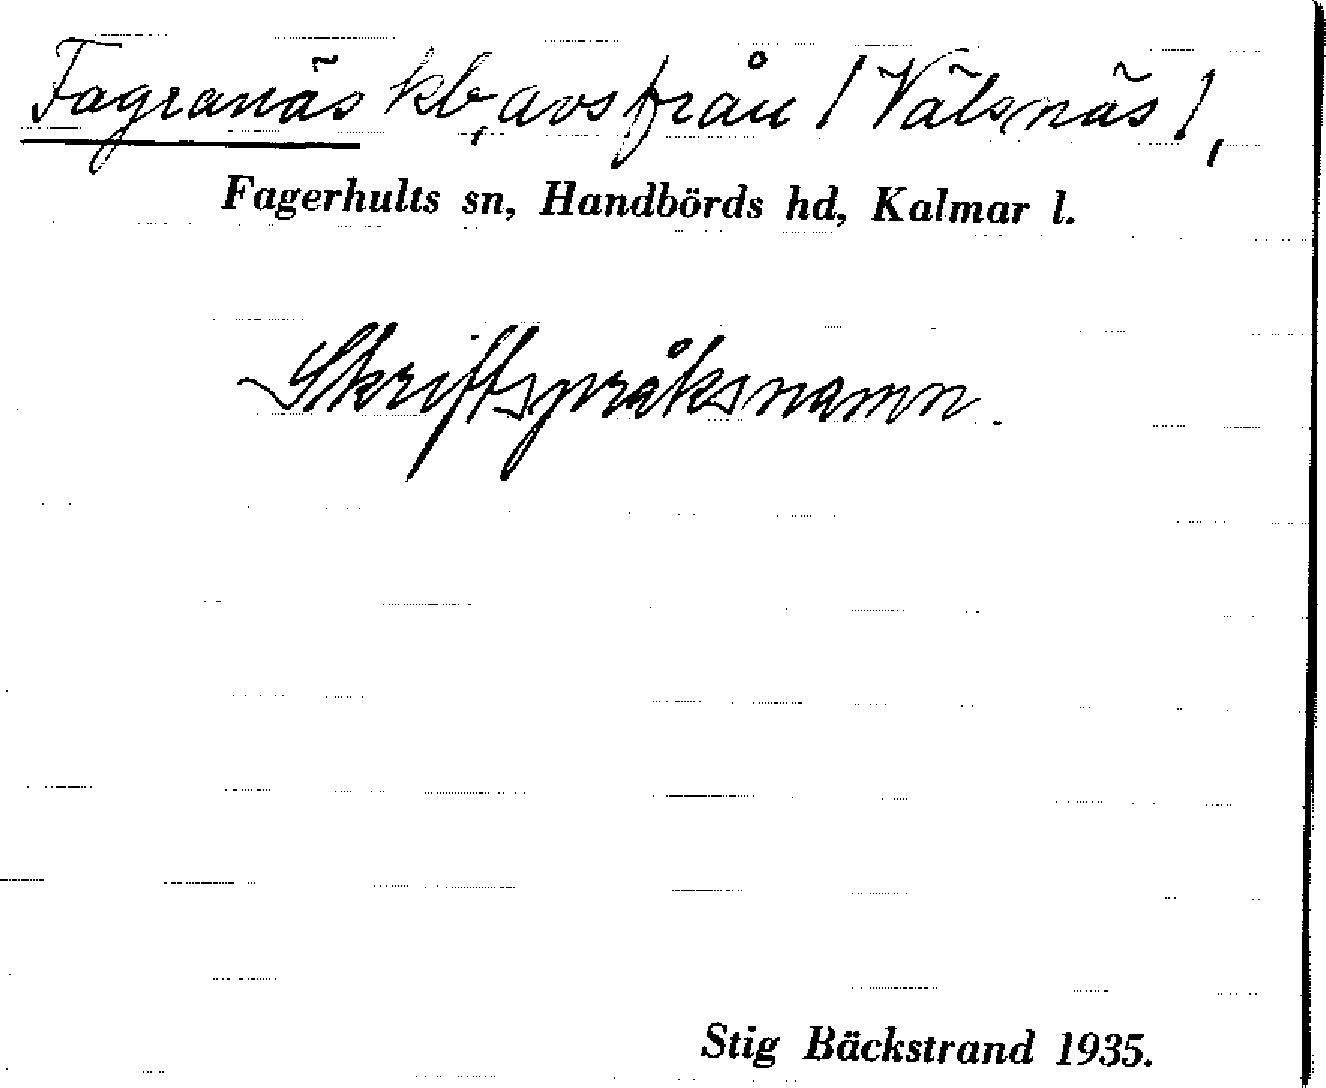 Fagranäs klb, avs från / Välsnäs /,
Fagerhults sn, Handbörds hd, Kalmar l.
Skriftspråksnamn.
Stig Bäckstrand 1935.